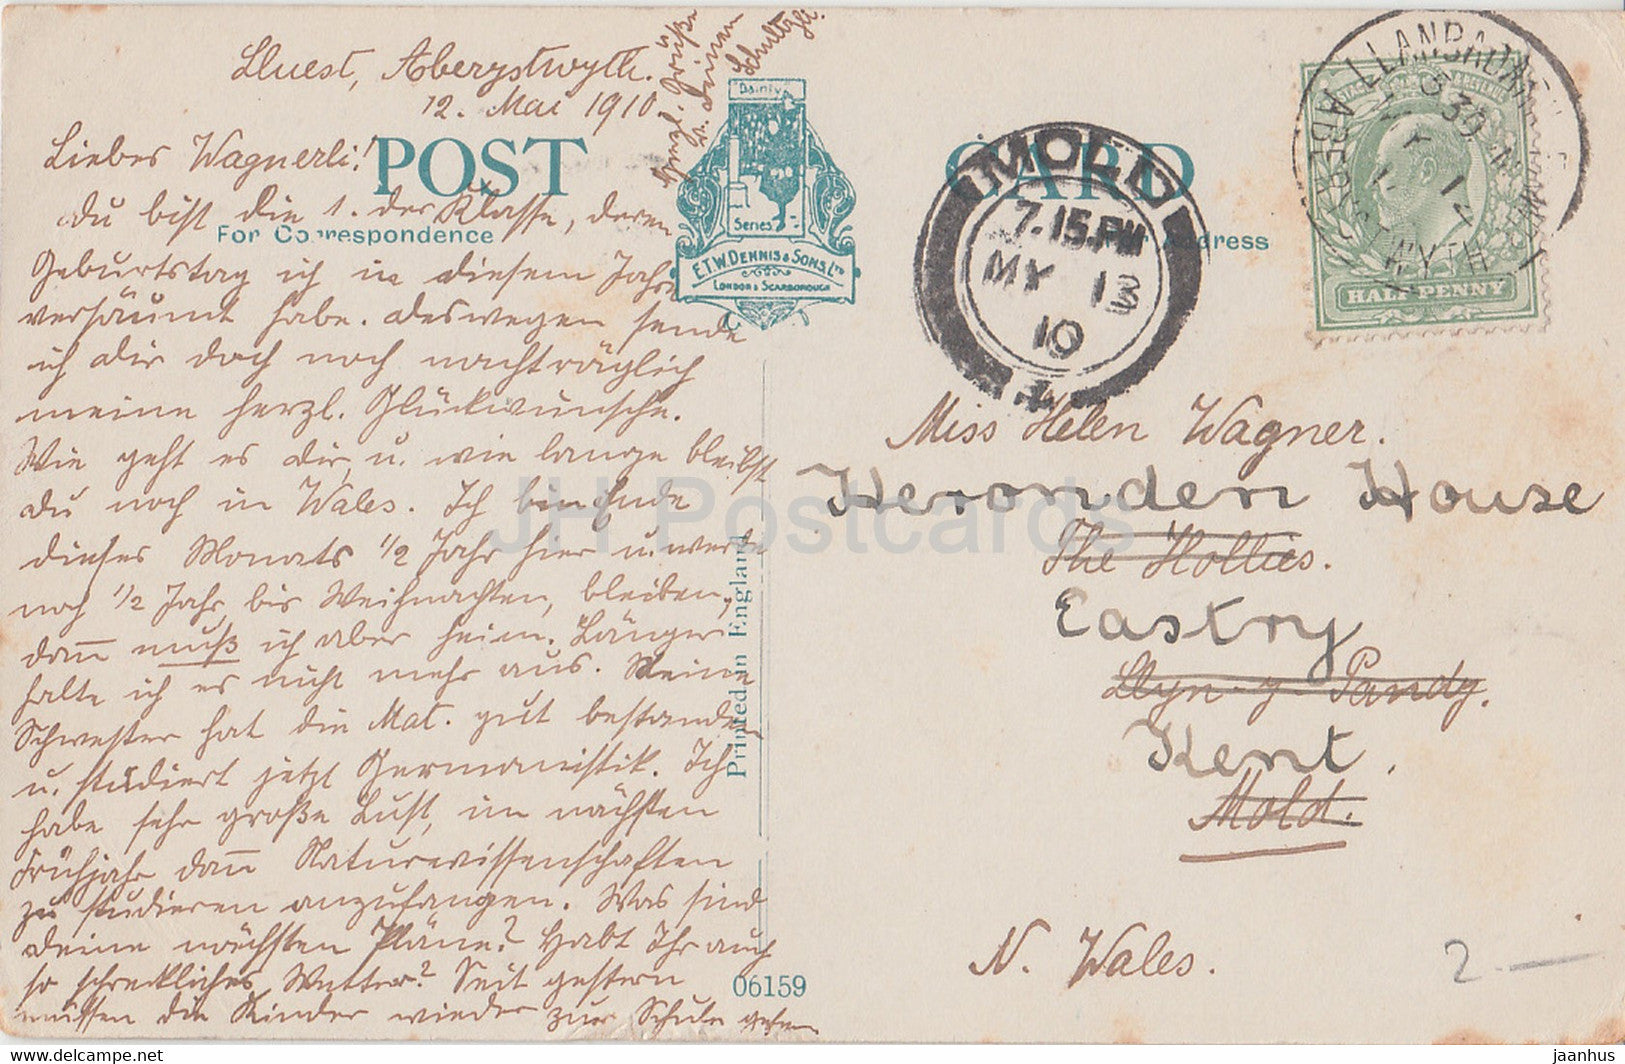 Lluest, Aberystwyth.
12. Mai 1910.
Liebes Wagnerli!
du bist die 1. der Klasse, deren
Geburtstag ich in diesem Jahre
versäumt habe. deswegen sende
ich dir doch noch nachträglich
meine herzl. Glückwünsche.
Wie geht es dir u. wie lange bleibst
du noch in Wales. Ich bin Ende
dieses Monats 1/2 Jahr hier u. werde
noch 1/2 Jahr, bis Weihnachten, bleiben,
dann muß ich aber heim. Länger
halte ich es nicht mehr aus. Meine
Schwester hat die Mat. gut bestanden
u. studiert jetzt Germanistik. Ich
habe sehr große Lust, im nächsten
Frühjahr dann Naturwissenschaften
zu studieren anzufangen. Was sind
deine nächsten Pläne? Habt Ihr auch
so schreckliches Wetter? Seit gestern
müssen die Kinder wieder zur Schule gehen
Grüße
v. Deiner
Schultzli.
POST CARD
For Correspondence
Address
Dainty
Series
E.T.W. DENNIS & SONS, LTD
LONDON & SCARBOROUGH
Printed in England
06159
MOLD
7.15.PM
MY 13
10
LLANBADARN
ABERYSTWYTH
MY 12
HALF PENNY
Miss Helen Wagner.
Heronden House
The Hollies.
Eastry
Llyn-y-Pandy.
Kent.
Mold.
N. Wales.
2.—
JH Postcards
https://www.jhpostcards.com
jaanhus